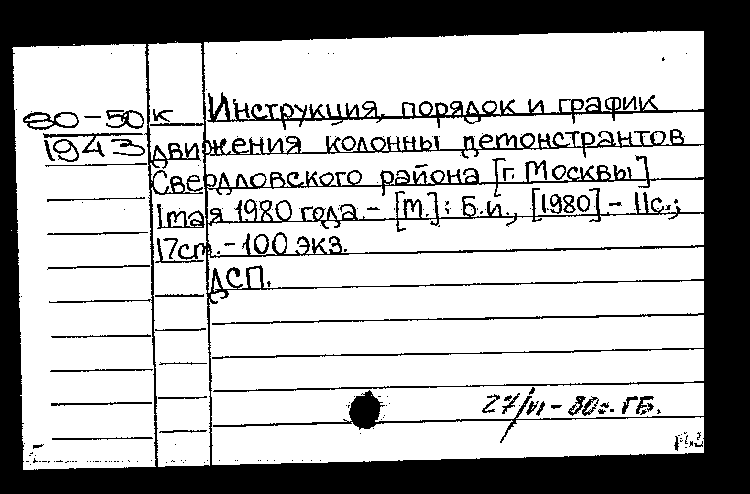 80-50 к Инструкция, порядок и график
1943 движения колонны демонстрантов
Свердловского района [г. Москвы]
1 мая 1980 года. - [М.]: Б.и., [1980]. - 11с.;
17 см. - 100 экз.
ДСП.
27/VI - 80г. ГБ.